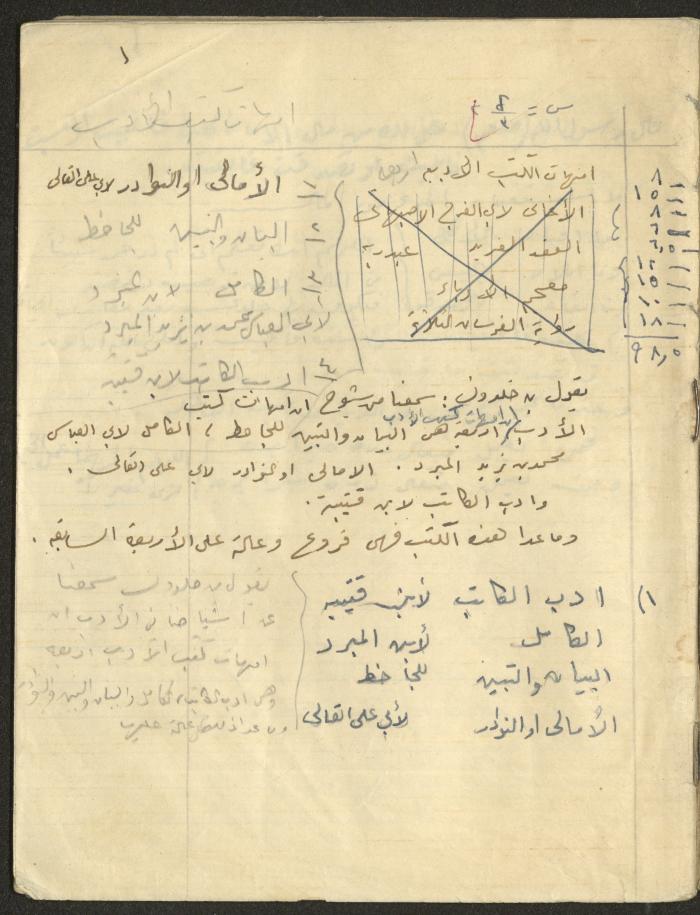 ١
امهات كتب الأدب
س =
امهات الكتب الادبيه اربعه
الأغانى لابي الفرج الاصبهانى
العقد الفريد عبدربه
معجم الادباء
رواية الفرسان الثلاثة
١ الأمالى او النوادر لابي على القالى
٢ البيان والتبيين للجاحظ
٣ الكامل لابن المبرد
لأبي العباس محمد بن يزيد المبرد
٤ ادب الكاتب لابن قتيبه
٨
١٥
٨
٦
٦,٥
١٢
١٥
١٠
١٨
٩٨,٥
يقول بن خلدون : سمعنا من شيوخ ان امهات كتب
ان امهات كتب الأدب
الأدب اربعة هى البيان والتبيين للجاحظ ، الكامل لابي العباس
محمد بن يزيد المبرد . الامالى او النوادر لابي على القالى .
وادب الكاتب لابن قتيبة .
وما عدا هذه الكتب فهى فروع وعالة على الأربعة السابقة .
١) ادب الكاتب لأبن قتيبه
الكامل لأبن المبرد
البيان والتبيين للجاحظ
الأمالى او النوادر لأبي على القالى
يقول بن خلدون سمعنا
عن اشياخنا فى الأدب ان
امهات كتب الادب اربعه
وهى ادب الكاتب، الكامل والبيان والتبيين والنوادر
وما عدا ذلك عالة عليها